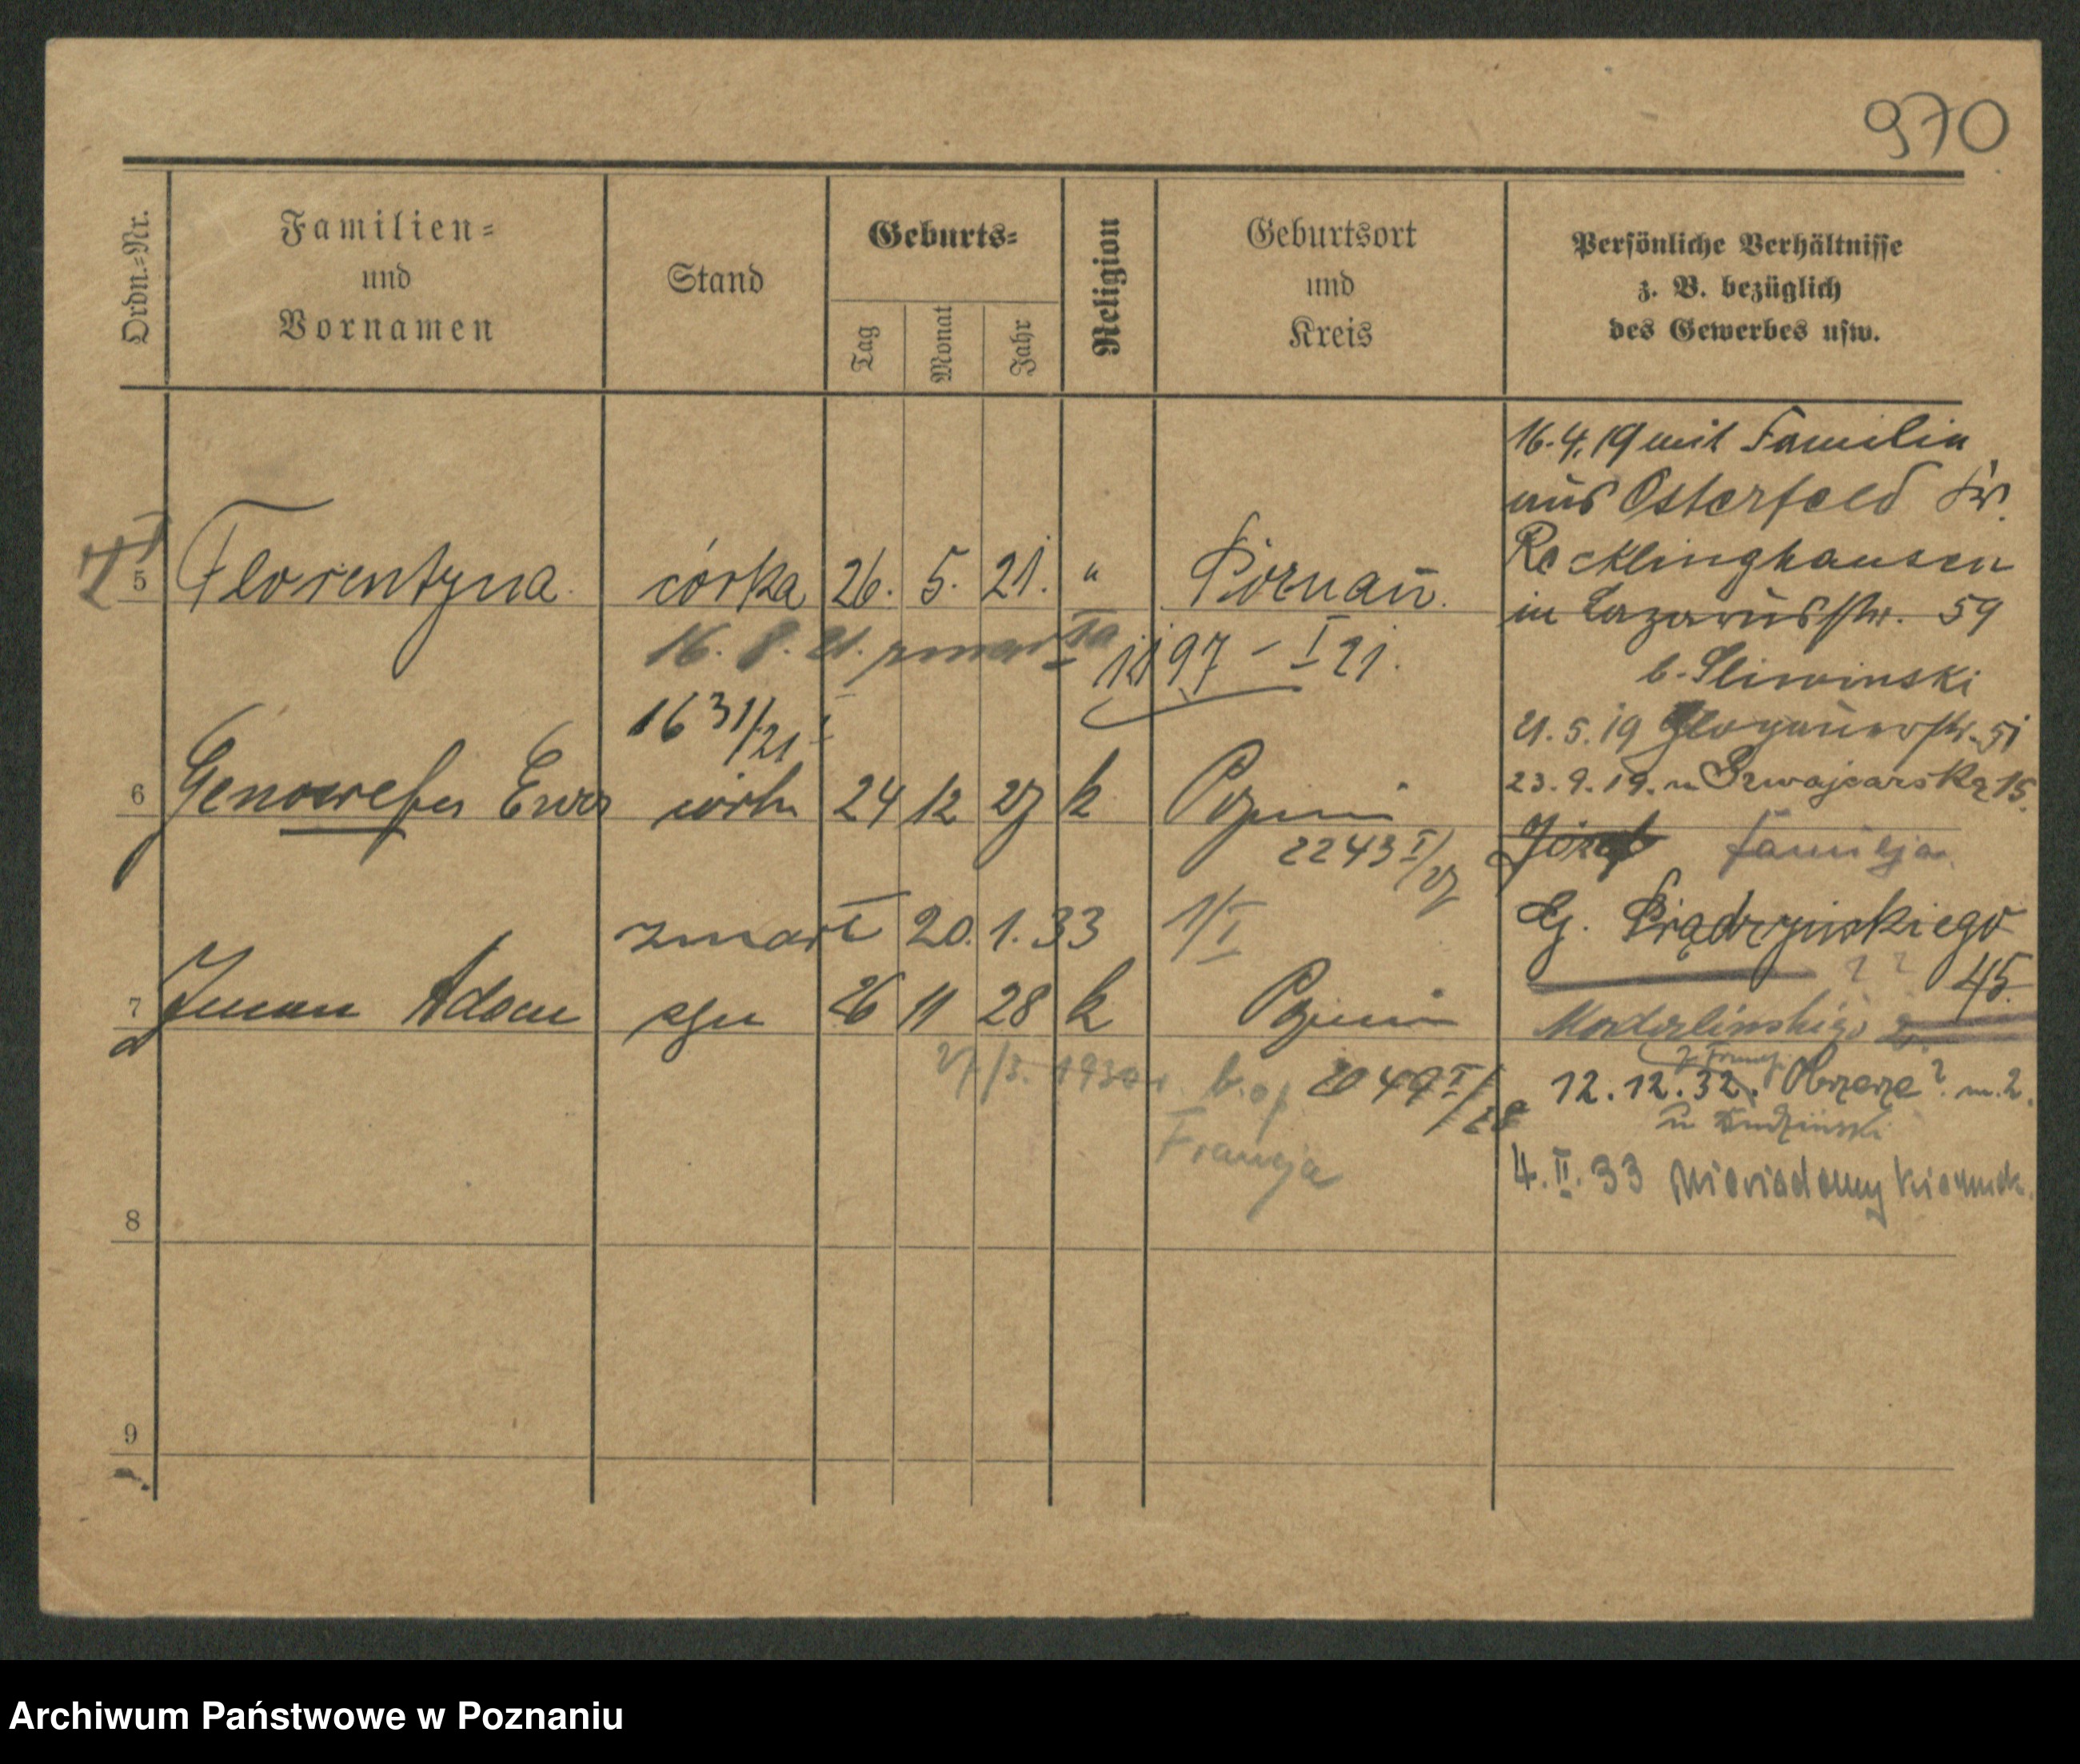 970
Ordn.-Nr.
Familien-
und
Vornamen
Stand
Geburts-
Tag
Monat
Jahr
Religion
Geburtsort
und
Kreis
Persönliche Verhältnisse
z. B. bezüglich
des Gewerbes usw.
16.4.19 mit Familie
aus Osterfeld Kr.
Recklinghausen
in Lazarusstr. 59
b. Sliwinski
21.5.19 Glogauerstr. 51
23.9.19. Szwajcarska 15.
familja
G. Prądzyńskiego
45.
12.12.32. m. 2.
4. II. 33 niewiadomy kierunek
5 Florentyna córka 26. 5. 21. " Poznań.
16. 8. 21. zmarła
1197 - I 21.
1631/21 I
6 Genowefa Ewa córka 24 12 27 k Poznań
2243 I/27
zmarł 20. 1. 33 1/I
7 Adam syn 26 11 28 k Poznań
2049 I/28
Francja
8
9
Archiwum Państwowe w Poznaniu